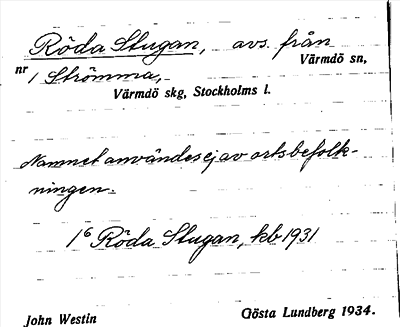 Röda Stugan, avs. från
Värmdö sn,
nr
1 Strömma,
Värmdö skg, Stockholms l.
Namnet användes ej av ortsbefolk-
ningen.
1⁶ Röda Stugan, kb 1931
John Westin
Gösta Lundberg 1934.